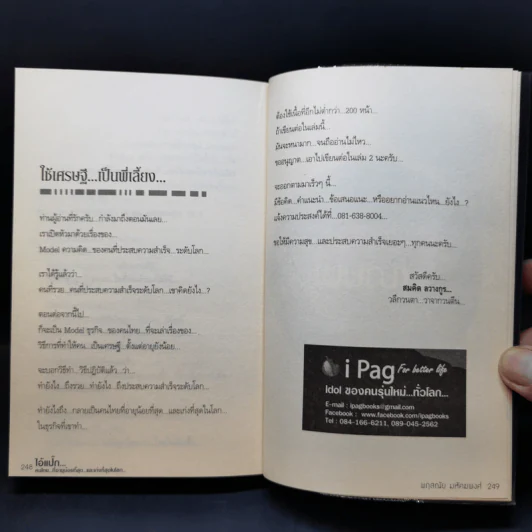 ใช้เศรษฐี...เป็นพี่เลี้ยง...
ท่านผู้อ่านที่รักครับ...กำลังมาถึงตอนมันเลย...
เราเปิดตัวมาด้วยเรื่องของ...
Model ความคิด...ของคนที่ประสบความสำเร็จ...ระดับโลก...
เราได้รู้แล้วว่า...
คนที่รวย...คนที่ประสบความสำเร็จระดับโลก...เขาคิดยังไง...?
ตอนต่อจากนี้ไป...
ก็จะเป็น Model ธุรกิจ...ของคนไทย...ที่จะเล่าเรื่องของ...
วิธีการที่ทำให้คน...เป็นเศรษฐี...ตั้งแต่อายุยังน้อย...
จะบอกวิธีทำ...วิธีปฏิบัติแล้ว...ว่า...
ทำยังไง...ถึงรวย...ทำยังไง...ถึงประสบความสำเร็จระดับโลก...
ทำยังไงถึง...กลายเป็นคนไทยที่อายุน้อยที่สุด...และเก่งที่สุดในโลก...
ในธุรกิจที่เขาทำ...
248 ไอ้แป๊ก...
ต้องใช้เนื้อที่อีกไม่ต่ำกว่า...200 หน้า...
ถ้าเขียนต่อในเล่มนี้...
มันจะหนามาก...จนถืออ่านไม่ไหว...
ขออนุญาต...เอาไปเขียนต่อในเล่ม 2 นะครับ...
จะออกตามมาเร็วๆ นี้...
มีข้อคิด...คำแนะนำ...ข้อเสนอแนะ...หรืออยากอ่านแนวไหน...ยังไง...?
แจ้งความประสงค์ได้ที่...081-638-8004...
ขอให้มีความสุข...และประสบความสำเร็จเยอะๆ...ทุกคนนะครับ...
สวัสดีครับ...
สมคิด ลวางกูร...
วลีกวนตา...วาจากวนตีน...
i Pag For better life
Idol ของคนรุ่นใหม่...ทั่วโลก...
E-mail : ipagbooks@gmail.com
Facebook : www.facebook.com/ipagbooks
Tel : 084-166-6211, 089-045-2562
249